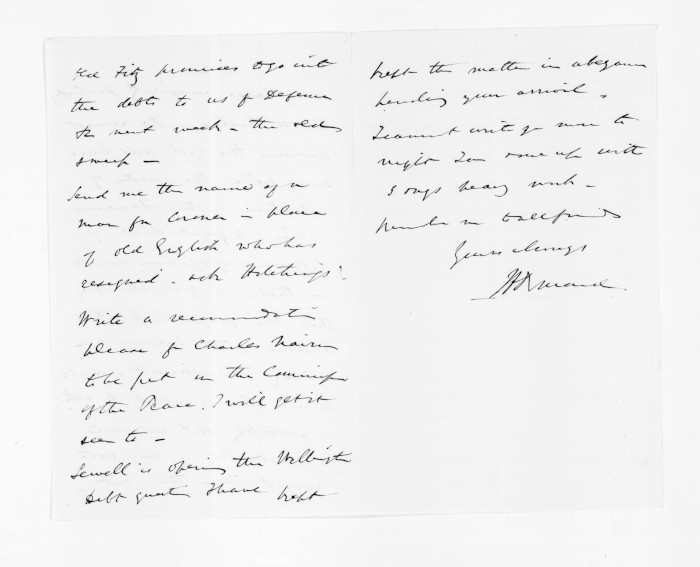 Old Fitz promises to go into
the debts to us of Defence
& next week - the old
sweep -
Send me the name of a
man for Coroner in place
of old English who has
resigned. ask Hitchings?
Write a recommendation
please for Charles Nairn
to be put in the Commission
of the Peace. I will get it
seen to -
Sewell is opening the Wellington
Debt question I have kept
kept the matter in abeyance
pending your arrival.
I cannot write you more to
night I am done up with
5 days heavy work -
to all friends
Yours always